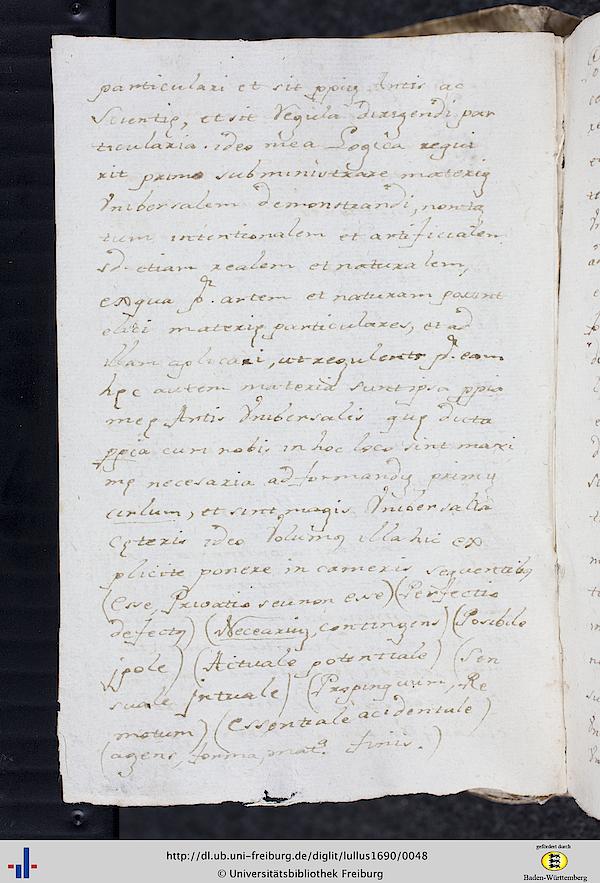 particulari et sit ppiũ Artis ac
Scientię, et sit Regula dirigendi par
ticularia. ideo mea Logica requi
rit primo subministrare materiã
Vniversalem demonstrandi, non tã
tum intentionalem et artificialem
sd etiam realem et naturalem,
ex qua p. artem et naturam posint
elici materię particulares, et ad
illam aplicari, ut regulentr p. eam
hęc autem materia sunt ipsa ppia
meę Artis Vniversalis quę dicta
ppia cum nobis in hoc loco sint maxi
mę necesaria ad formandũ primũ
cirlum, et sint magis Vniversalia
cęteris ideo Volumq illa hic ex
plicite ponere in cameris sequentibq
(Esse, Privatio seu non esse) (Perfectio
defectq) (Necearium, contingens) (Posibile
jpole) (Actuale potentiale) (Sen
suale jntuale) (Propinquum, Re
motum) (Essentiale acidentale)
(agens, forma, mata. finis.)
http://dl.ub.uni-freiburg.de/diglit/lullus1690/0048
© Universitätsbibliothek Freiburg
gefördert durch
Baden-Württemberg